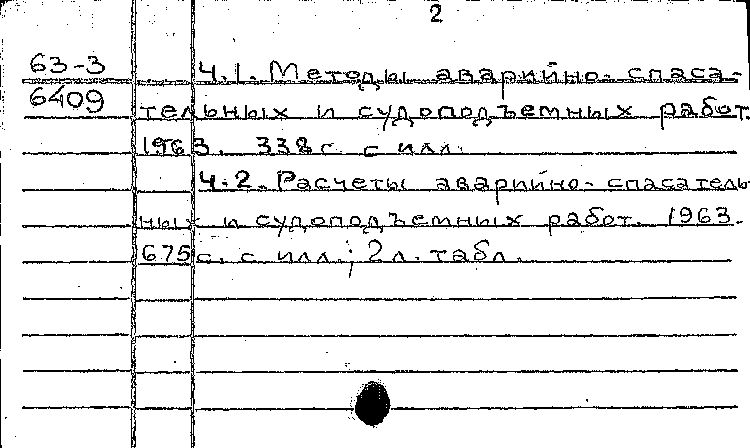 2
63-3 Ч.1. Методы аварийно-спаса-
6409 тельных и судоподъемных работ.
1963. 338 с. с илл.
Ч.2. Расчеты аварийно-спасатель-
ных и судоподъемных работ. 1963.
675 с. с илл.; 2 л. табл.